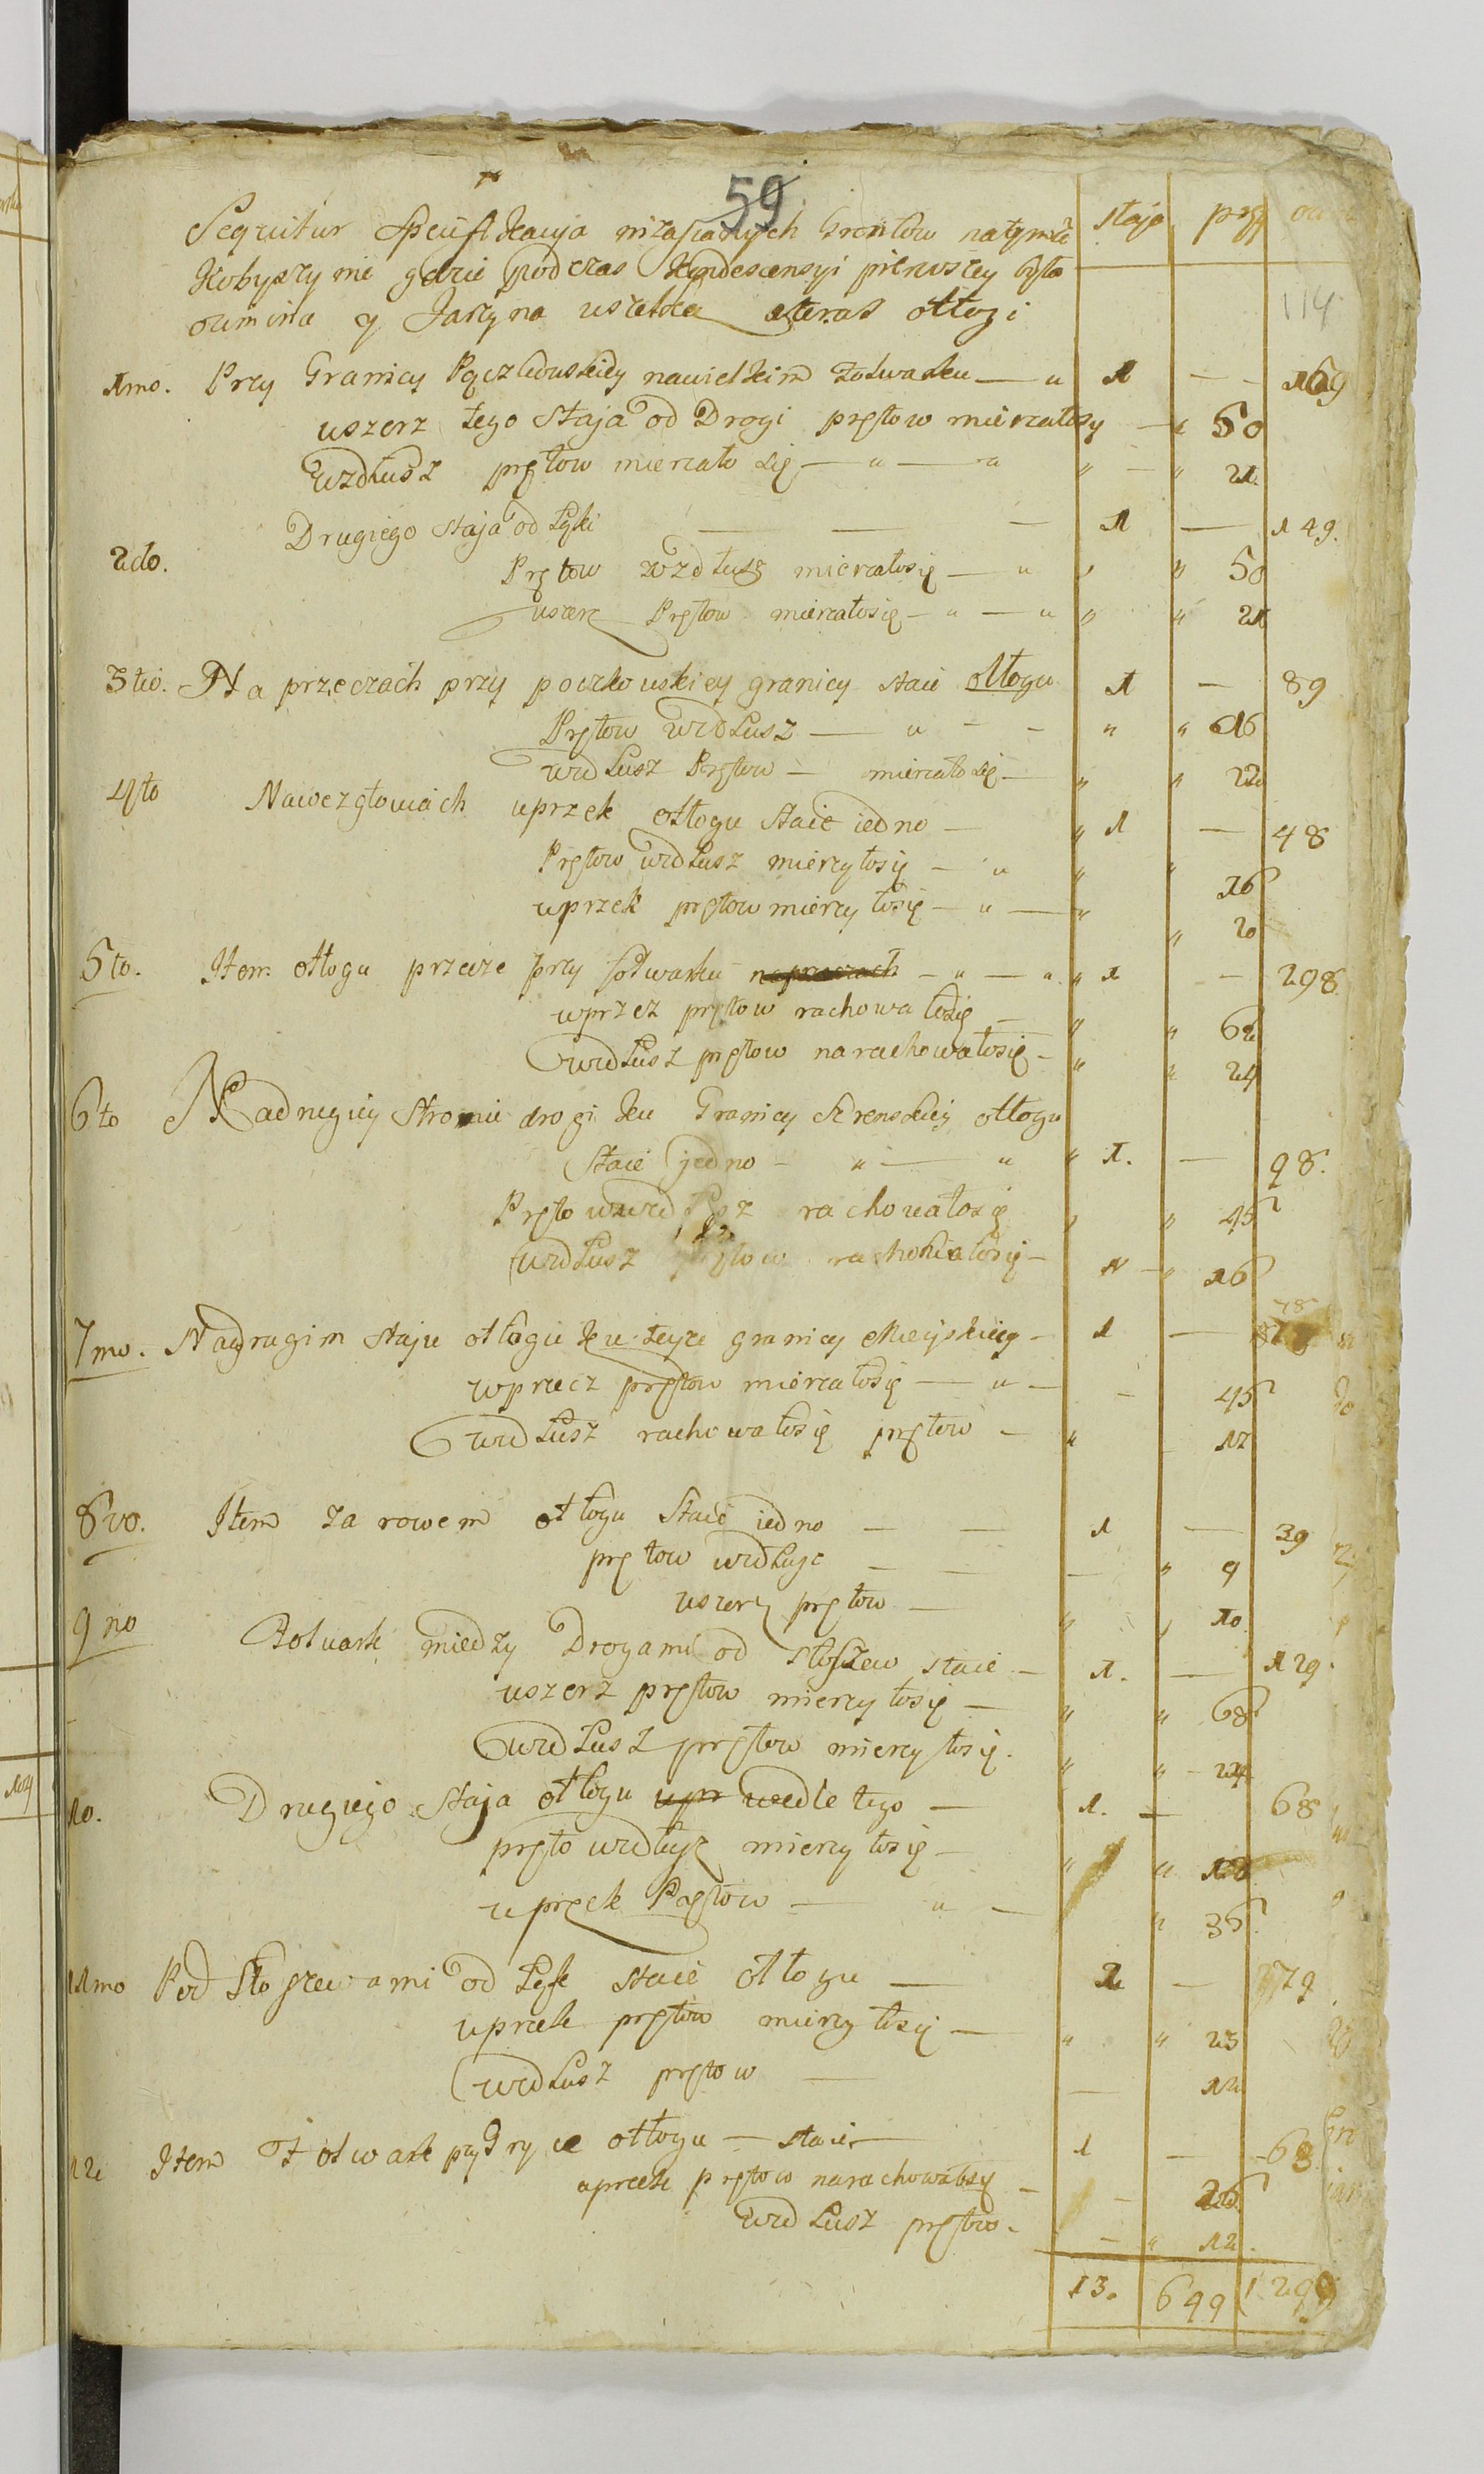 59
Sequitur Specifikacya niżasianych Grontow natymże staje pręt
Kobyszynie gdzie podczas Kondescensyi pierwszey była
ozimina y Jarzyna wszelka a teraz odłogi 114
1mo. Przy Granicy nawielkim Folwarku — " 1 — - 169
wszerz tego Staja od Drogi prętow mierzałosię — " 50
Wzdłusz prętow mierzało się — " — " " — " 21.
Drugiego staja od Łąki — — — 1 — 149.
2do. Prętow wzdłusz mierzałosię — " " " 50
wszerz Prętow mierzałosię — " — " " " 21
3tio. Na przeczach przy poczkowskiey granicy staie odłogu 1 — 89
Prętow wzdłusz — " - - " " 16
wzdłusz Prętow — mierzało się — " " 22
4to Nawezgłowiach uprzek odłogu staie iedno — " 1 — 48
Prętow wzdłusz mierzyłosię — " " " 16
uprzek prętow mierzyłosię — " — " " 20
5to. Item odłogu przecze przy folwarku naprzeczach — " — " " 1 — 298.
wprzez prętow rachowałosię — " " 62
wzdłusz prętow narachowałosię — " " 24
6to Nadrugiey stronie drogi ku Granicy Szrenskiey odłogu
staie jedno — " — " " 1. — 98.
Prętow wzdłusz rachowałosię " " 45
wzdłusz prętow rachowałosię — " — " 16
7mo. Nadrugim staju odłogu ku teyże granicy Mieyskiey — 1 — 78
wprzecz prętow mierzałosię — " — - 45
wzdłusz rachowałosię prętow — " 17
8vo. Item za rowem odłogu staie iedno — — 1 — 39
prętow wzdłuże — — — " 9
wszerz prętow — " " 10.
9no Folwark między Drogami od Słoszew staie — 1. — 129.
wszerz prętow mierzyłosię — " " 68
wzdłusz prętow mierzyłosię. " " - 24
10. Drugiego staja odłogu upr wedle tego — 1. — 68
pręto wzdłusz mierzyłosię — " " 18
uprzek Prętow — " — " 36.
11mo Pod Słoszewami od Łąk staie odłogu — 1 — 79
uprzek prętow mierzyłosię — " " 23
wzdłusz prętow — — 12
12 Item Folwark przy odłogu — staie — 1 — - 63
uprzek prętow narachowałosię — - 26
wzdłusz prętow. — " 12.
13. 649 1299